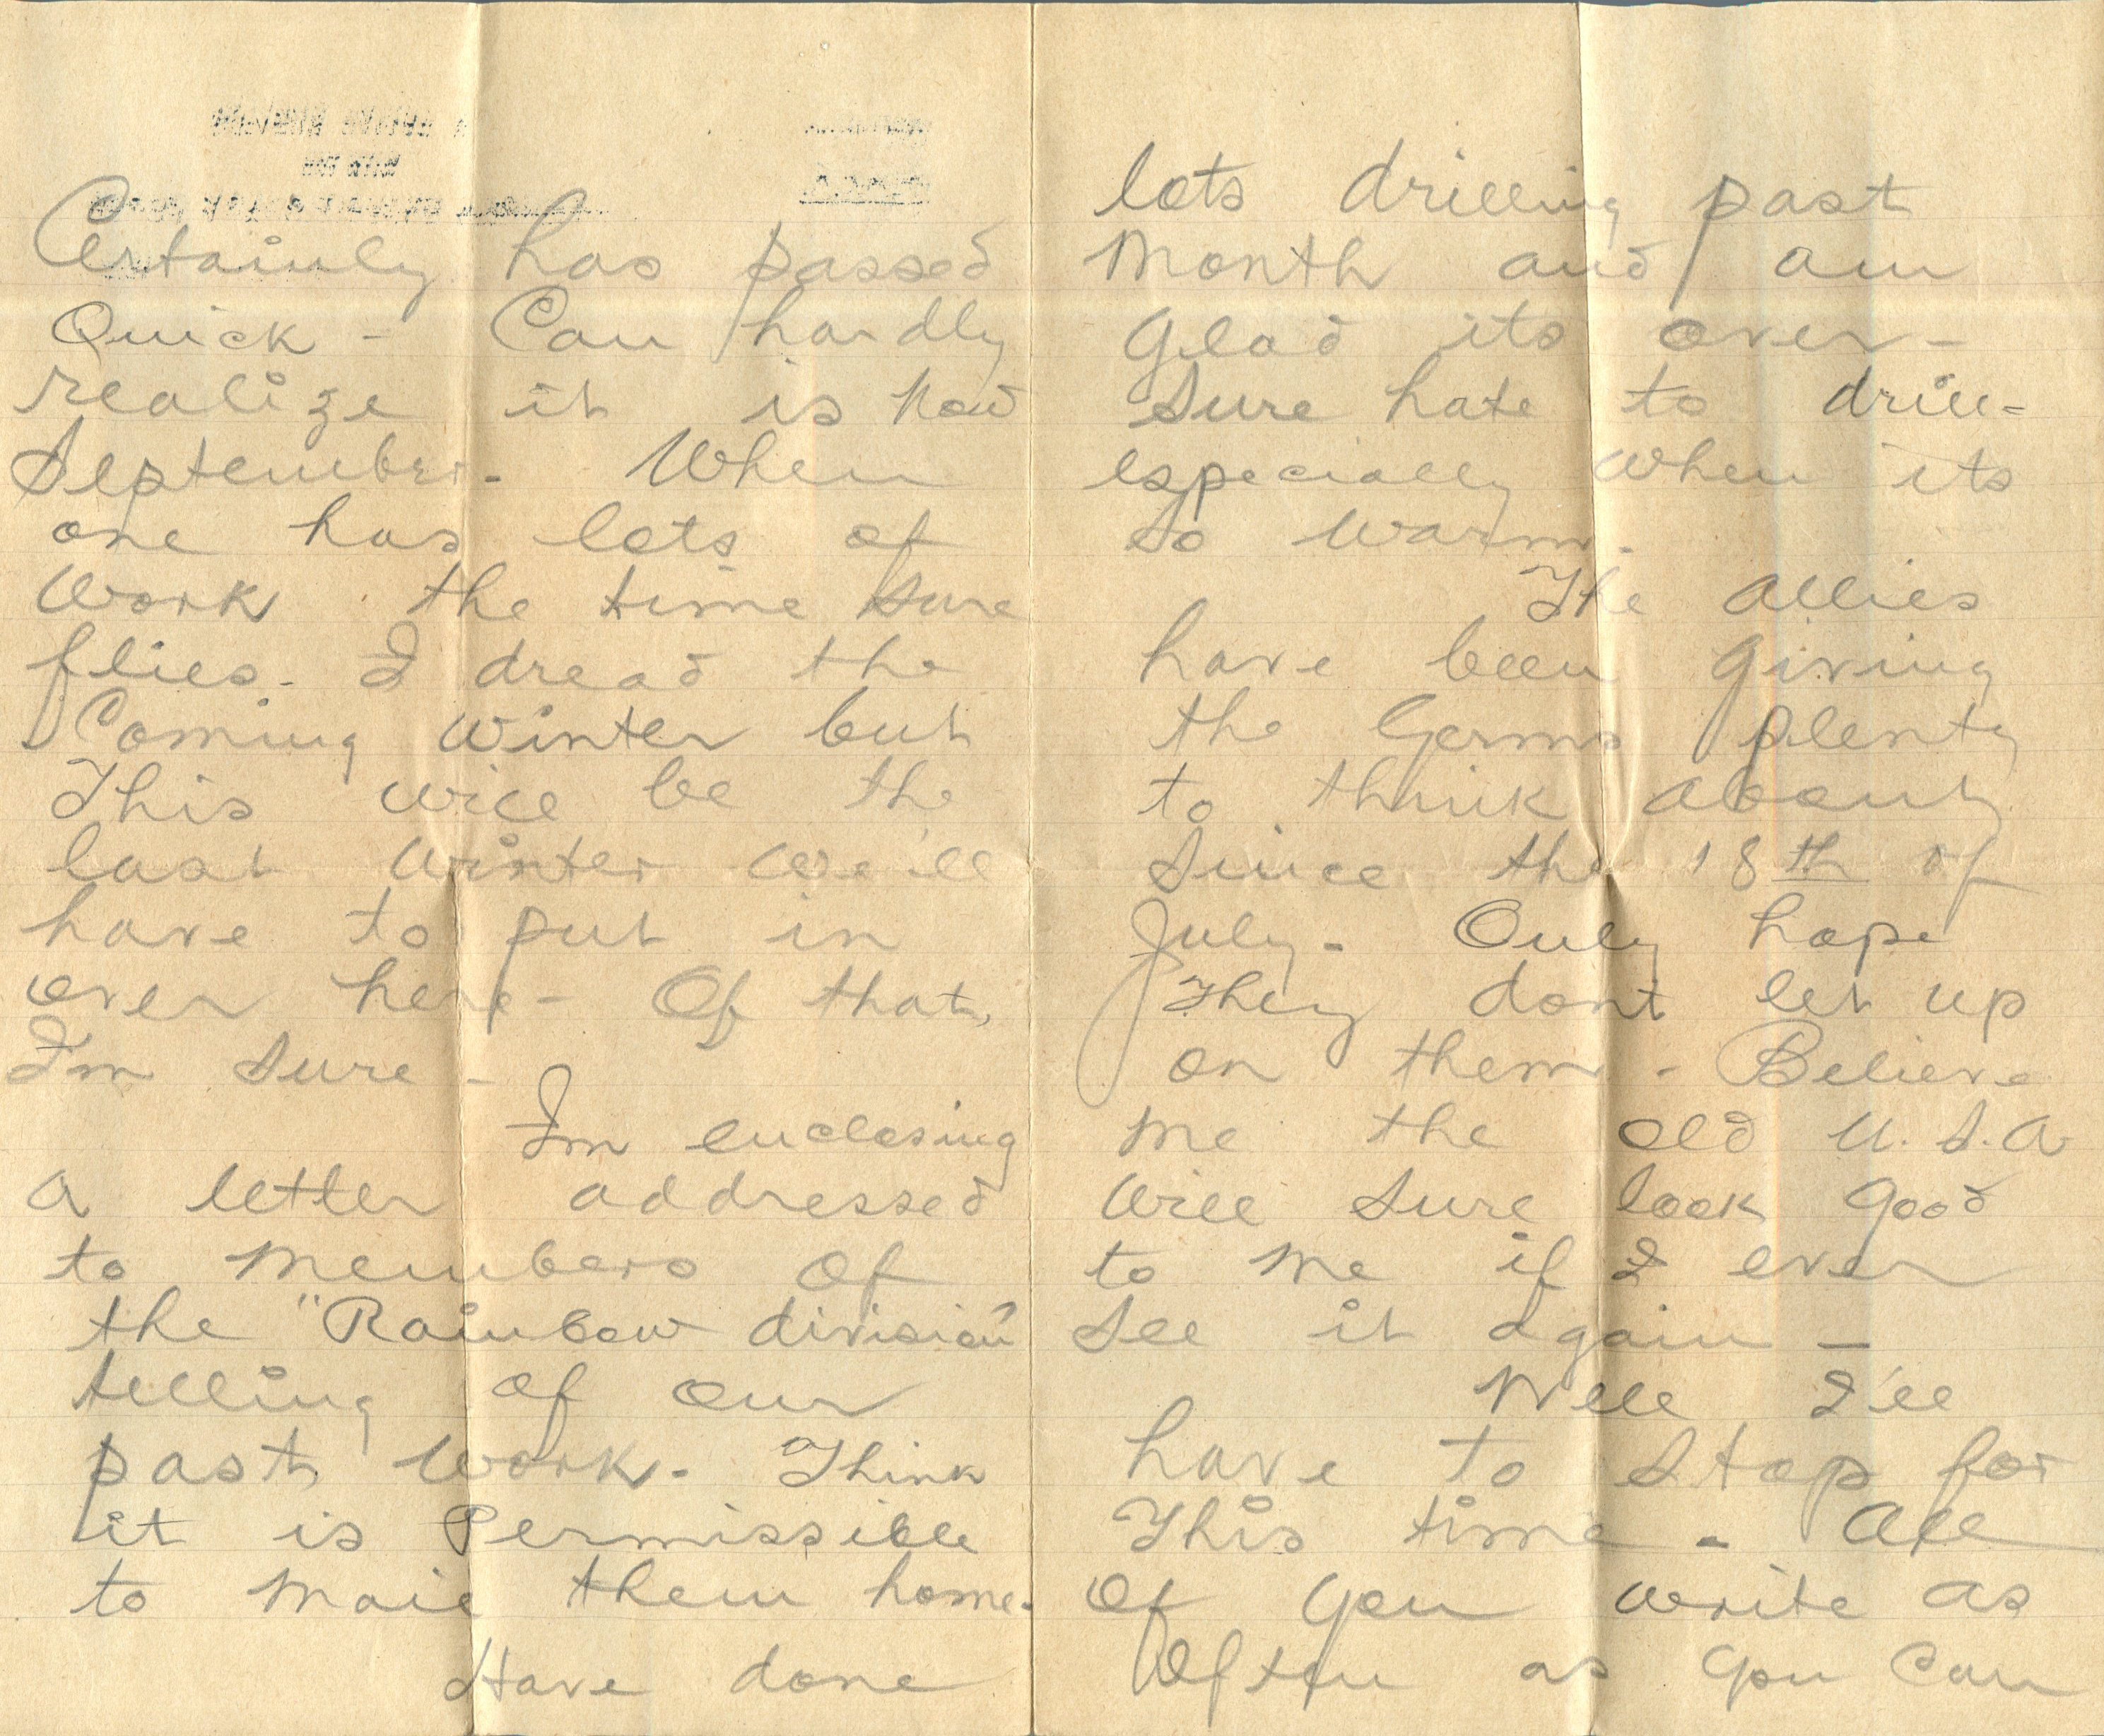 Certainly has passed
Quick - Can hardly
realize it is now
September. When
one has lots of
work the time sure
flies. I dread the
Coming winter but
This will be the
last winter we'ill
have to put in
over here - Of that,
I'm sure -
I'm enclosing
a letter addressed
to members of
the "Rainbow division"
telling of our
past work. Think
it is Permissible
to mail them home.
Have done
lots drilling past
Month and am
Glad its over -
Sure hate to drill -
especially when its
so warm.
The Allies
have been giving
the Germs plenty
to think about
since the 18th of
July. Only hope
They dont let up
on them. Believe
me the old U.S.A
will sure look good
to me if I ever
see it again -
Well I'll
have to stop for
This time. All
of you write as
often as you can